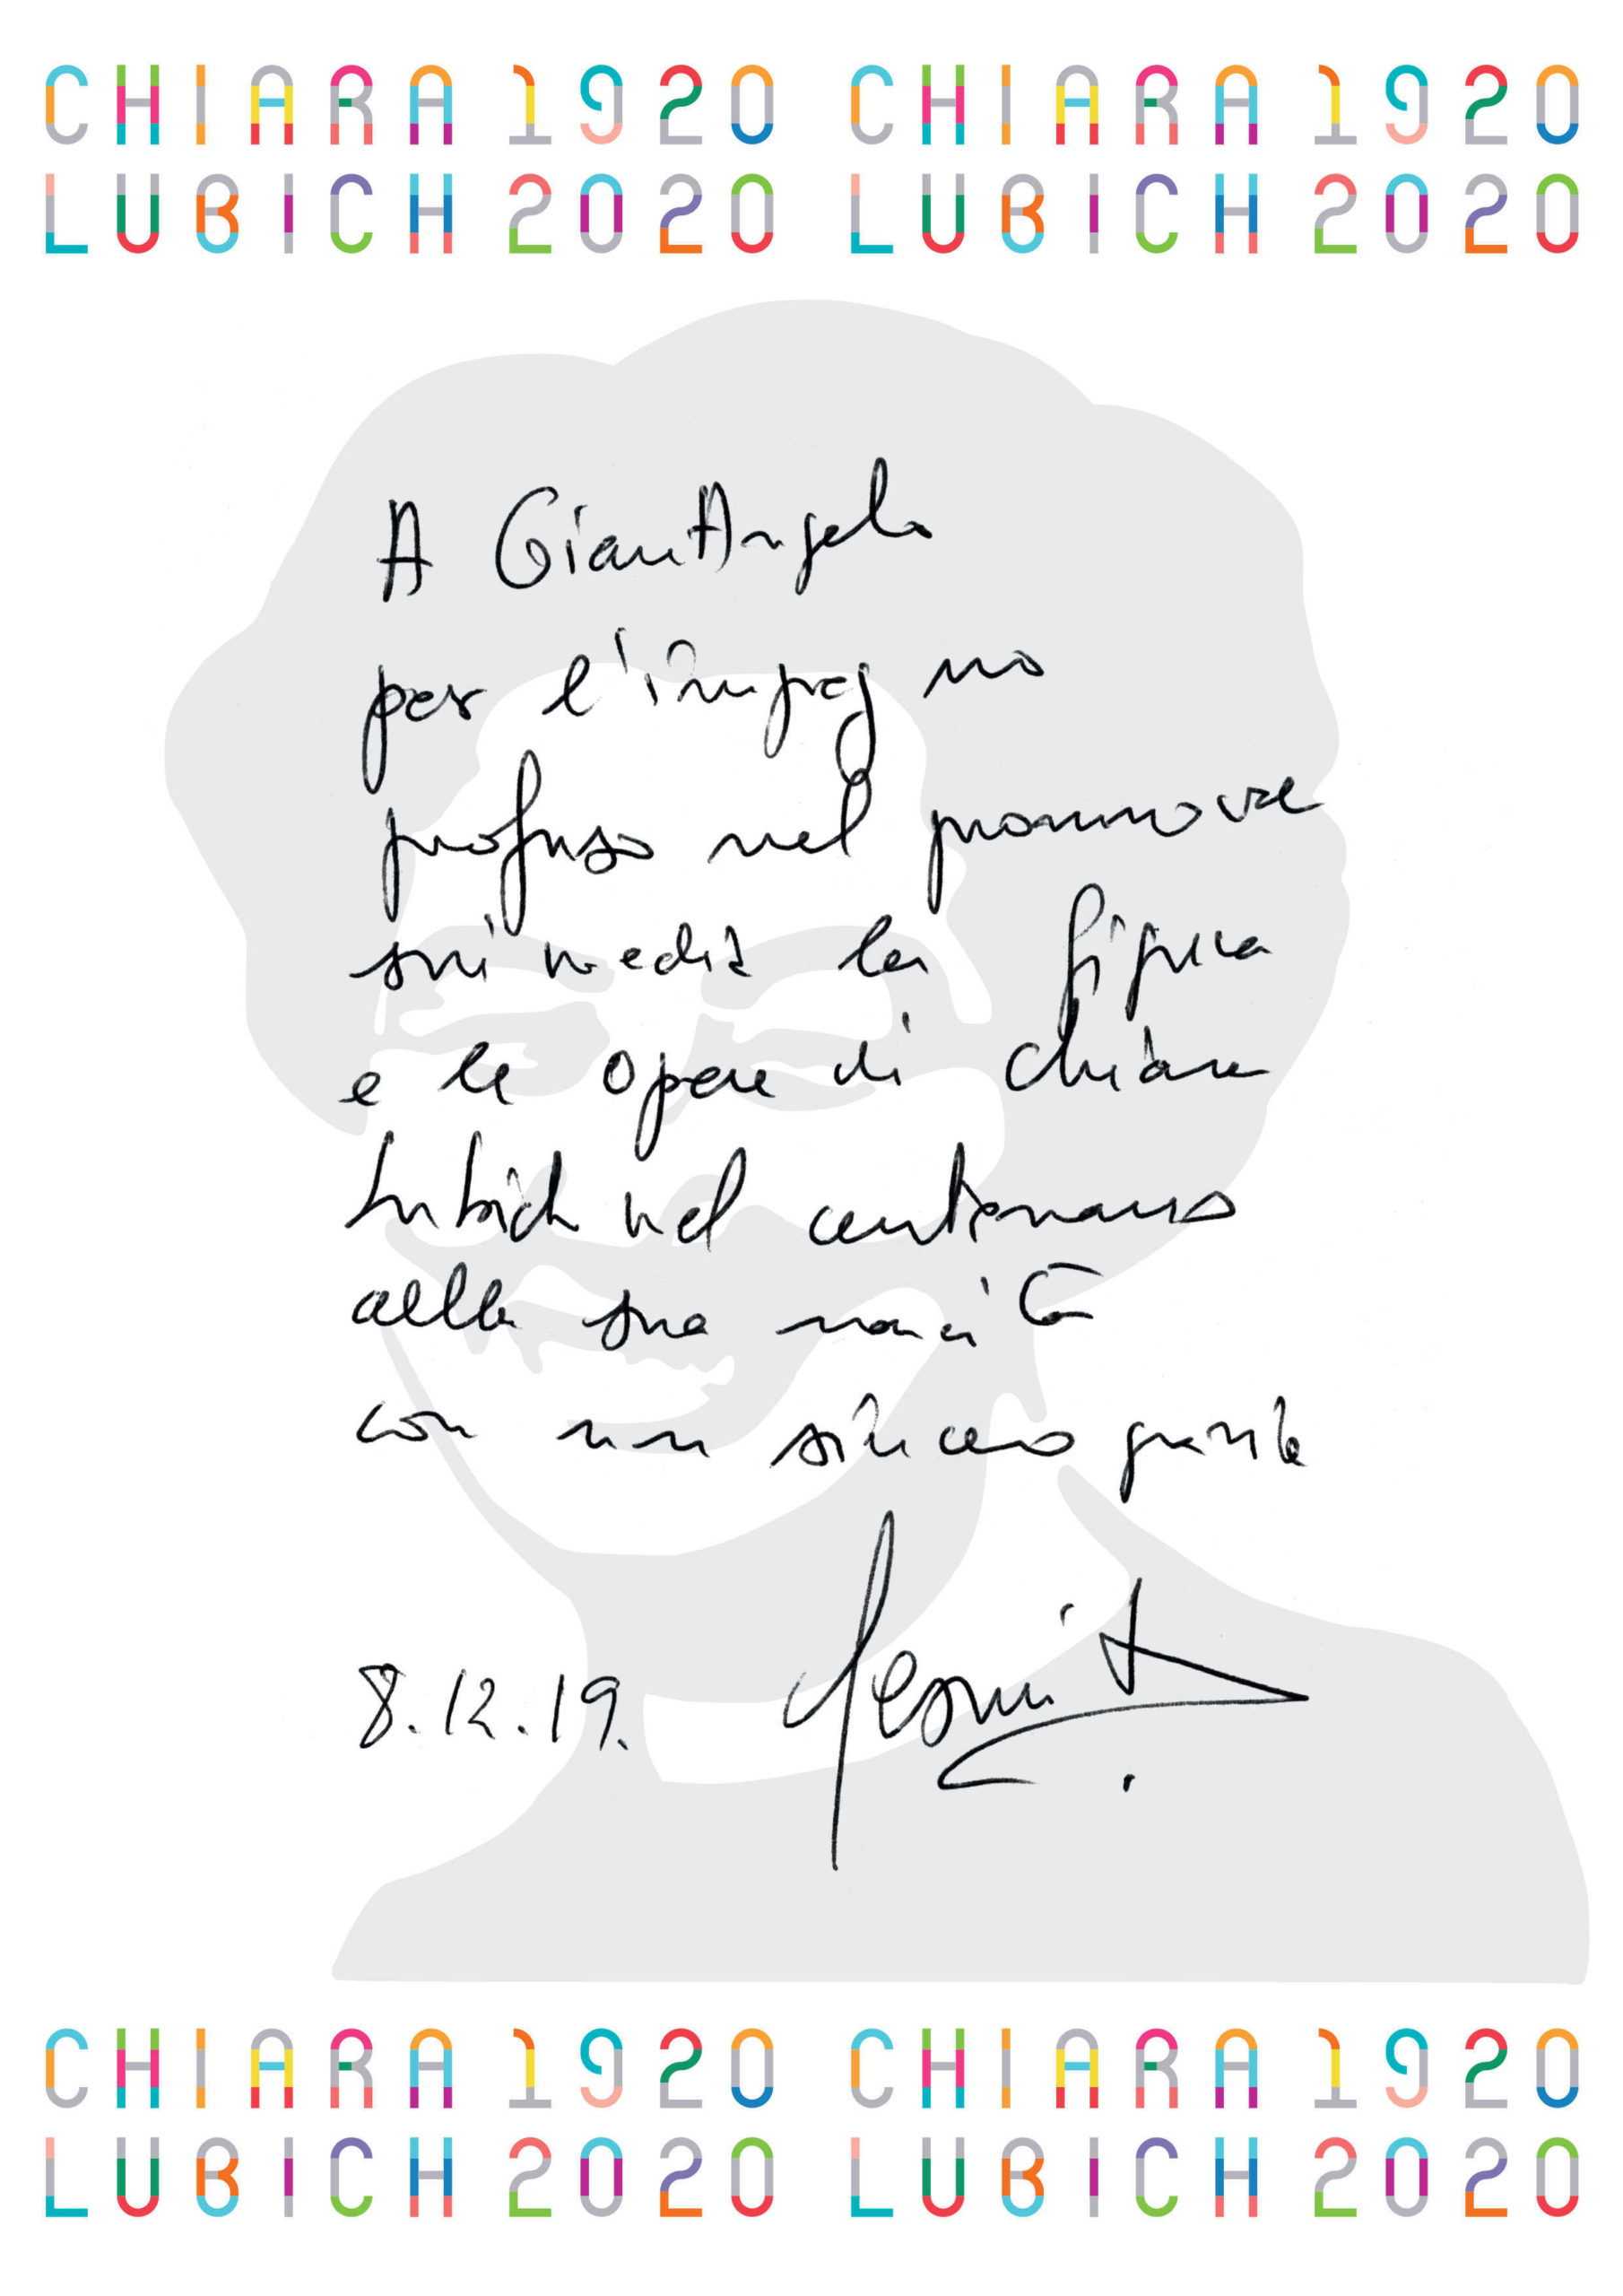 CHIARA 1920 CHIARA 1920
LUBICH 2020 LUBICH 2020
A GianAngelo
per l'impegno
profuso nel promuovere
sui media la figura
e le opere di Chiara
Lubich nel centenario
della sua nascita
con un sincero grazie
8.12.19.
CHIARA 1920 CHIARA 1920
LUBICH 2020 LUBICH 2020